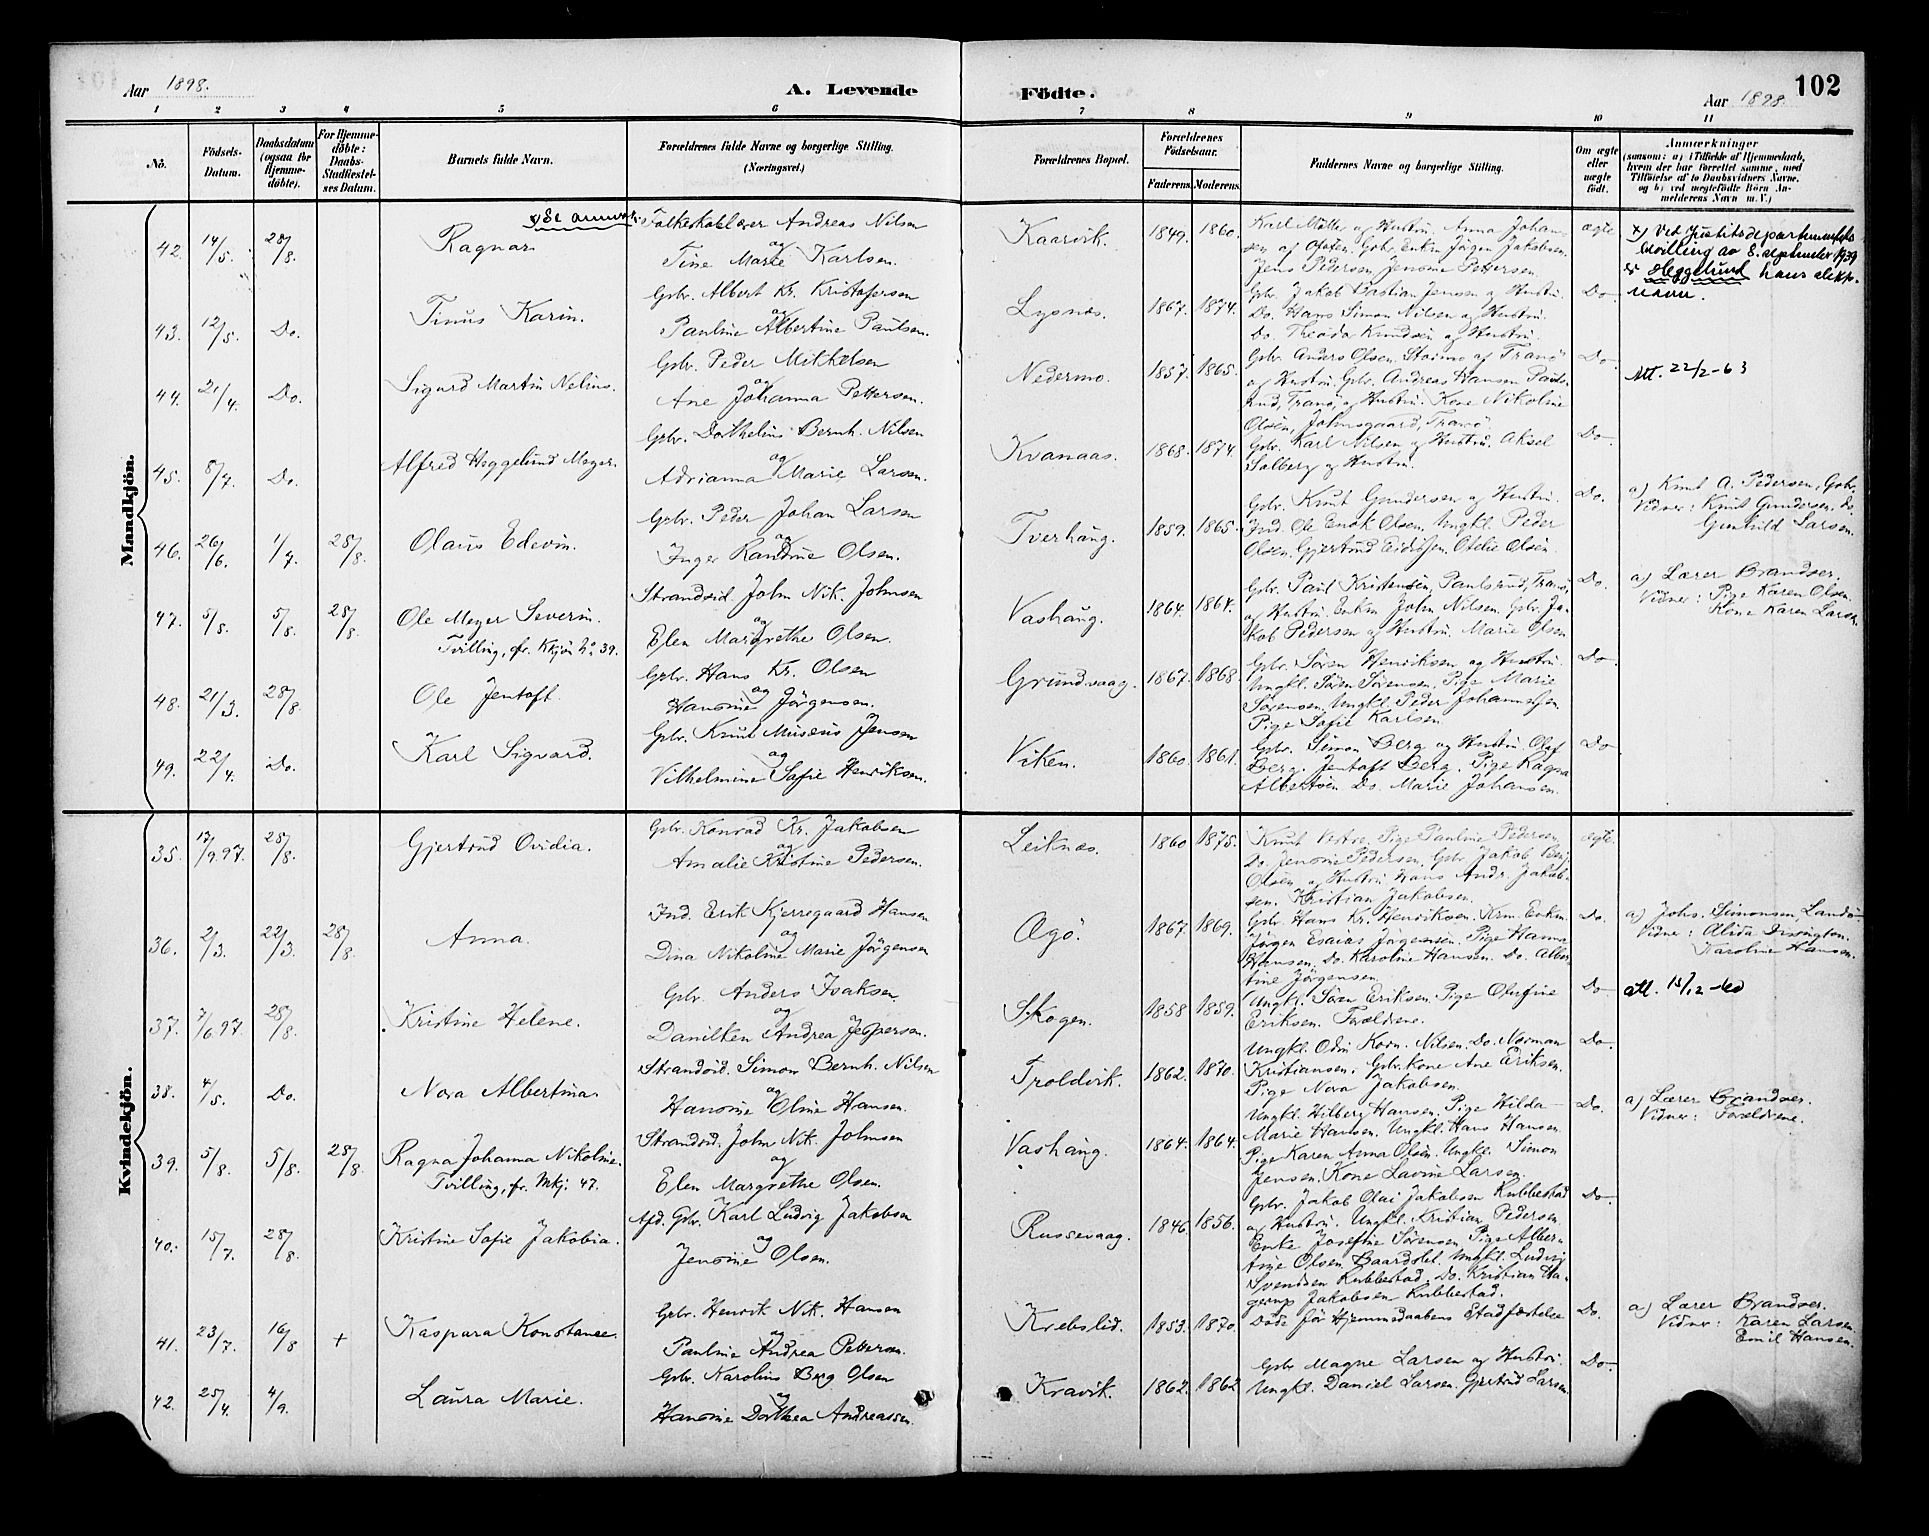 Aar 1898.
A. Levende
Födte.
Aar 1898.
102
1 2 3 4 5 6 7 8 9 10 11
No.
Födsels-Datum.
Daabsdatum (ogsaa for Hjemme-döbte).
For Hjemme-döbte: Daabs-Stadfæstel-ses Datum.
Barnets fulde Navn.
Forældrenes fulde Navne og borgerlige Stilling.
(Næringsvei.)
Forældrenes Bopæl.
Forældrenes Födselsaar.
Faderens. Moderens.
Faddernes Navne og borgerlige Stilling.
Om ægte eller uægte födt.
Anmærkninger
(saasom: a) i Tilfælde af Hjemmedaab, hvem der har forrettet samme, med Tilföielse af to Daabsvidners Navne, og b) ved uegtefödte Börn An-melderens Navn m. V.)
Mandkjön.
42. 14/5. 28/8. Ragnar. Folkeskolelærer Andreas Nilsen
og
Tine Marie Karlsen.
Kaarvik. 1849. 1860.
Karl Motte og Hustru. Anna Johan-
Jens Pedersen Jensine Pettersen.
ægte
x) Ved Justitsdepartementets
bevilling av 8. september 1939
er Heggelund hans slekts-
navn.
43. 12/5. Do. Tinus Karin. Gbr. Albert Kr. Kristofersen
og
Pauline Albertine Paulsen.
Lysnæs. 1867. 1874.
Gbr. Jakob Bastian Jensen og Hustru.
Do. Hans Simon Nilsen og Hustru.
Do. Theodor Knudsen og Hustru.
Do
44. 21/4. Do. Sigurd Martin Nelius. Gbr. Peder Mikkelsen
og
Ane Johanna Pettersen.
Nedermo. 1857. 1865.
Gbr. Anders Olsen, Stormo af Tranö
og Hustru. Gbr. Andreas Hansen Pauls-
rud, Tranö og Hustru. Kone Nikoline
Olsen, Johnsgaard, Tranö.
Do
Att. 22/2-63
45. 8/7. Do. Alfred Heggelund Meyer. Gbr. Dorthelius Bernh. Nilsen
og
Adrianna Marie Larsen.
Kvanaas. 1868. 1874.
Gbr. Karl Nilsen og Hustru. Aksel
Solberg og Hustru.
Do
46. 26/6. 1/7. 28/8. Olaus Edevin. Gbr. Peder Johan Larsen
og
Inger Randine Olsen.
Tverhaug. 1859. 1865.
Gbr. Knut Gundersen og Hustru.
Ind. Ole Enok Olsen, Ungkl. Peder
Olsen. Gjertrud Eidissen. Otelie Olsen.
Do.
a) Knut A. Pedersen, Gbr.
Vidner: Knut Gundersen. Do.
Gunhild Larsen.
47. 5/8. 5/8. 28/8. Ole Meyer Severin. Strandsid. John Nik. Johnsen
Tvilling, fr. Kkjön No 39.
og
Elen Margrethe Olsen.
Vashaug. 1864. 1864.
Gbr. Paul Kristensen, Paulsrud, Tranö
og Hustru. Enkm John Nilsen. Gbr. Ja-
kob Pedersen og Hustru. Marie Olsen
Do.
a) Lærer Brandser.
Vidner: Pige Karen Olsen.
Kone Karen Larsen.
48. 21/3. 28/8. Ole Jentoft. Gbr. Hans Kr. Olsen
og
Hansine Jörgensen.
Grundvaag. 1867. 1868.
Gbr. Sören Henriksen og Hustru.
Ungkl. Sören Sörensen. Pige Marie
Sörensen. Ungkl. Peder Johannesen.
Pige Sofie Karlsen.
Do
49. 22/4. Do. Karl Sigvard. Gbr. Knut Musæus Jensen
og
Vilhelmine Sofie Henriksen.
Viken. 1860. 1861.
Gbr. Simon Berg og Hustru. Olaf
Berg. Jentoft Berg. Pige Ragna
Albertsen. Do. Marie Johansen.
Do
Kvindekjön.
35. 17/9.97. 28/8. Gjertrud Ovidia. Gbr. Konrad Kr. Jakobsen
og
Amalie Kristine Pedersen.
Leiknæs. 1860 1875.
Pige Pauline Pedersen,
Do. Jensine Pedersen, Gbr Jakob Benj.
Olsen og Hustru Hans Andr. Jakob-
sen. Kristian Jakobsen.
ægte.
36. 2/3. 22/3. 28/8. Anna. Ind. Erik Kjerregaard Hansen
og
Dina Nikoline Marie Jörgensen
Ægö. 1867. 1869.
Gbr. Hans Kr. Henriksen.
Jörgen Esaias Jörgensen. Pige Hanna
Hansen. Do. Karoline Hansen. Do. Alber-
tine Jörgensen.
Do.
a) Johs. Simonsen, Landö
Vidner: Alida Dissington.
Karoline Hansen.
37. 7/6.97. 28/8. Kristine Helene. Gbr. Anders Isaksen,
og
Danilken Andrea Jespersen.
Skogen. 1858 1859.
Ungkl. Sören Eriksen. Pige Olufine
Eriksen. Forældrene.
Do
att. 15/12-60
38. 4/5. Do. Nora Albertina. Strandsid. Simon Bernh. Nilsen
og
Hansine Oline Hansen.
Troldvik. 1862. 1870.
Ungkl. Odin Korn. Nilsen. Do. Norman
Kristiansen. Gbr.kone Ane Eriksen.
Pige Nora Jakobsen.
Do
39. 5/8. 5/8. 28/8. Ragna Johanna Nikoline. Strandsid. John Nik. Johnsen
Tvilling, fr. Mkj. 47.
og
Elen Margrethe Olsen.
Vashaug. 1864. 1864.
Ungkl. Hilberg Hansen. Pige Hilda
Marie Hansen. Ungkl. Hans Hansen.
Pige Karen Anna Olsen. Ungkl. Simon
Jensen. Kone Lavine Larsen.
Do.
a) Lærer Brandser.
Vidner: Forældrene.
40. 15/7. 28/8. Kristine Sofie Jakobia. Afd. Gbr. Karl Ludvig Jakobsen
og
Jensine Olsen.
Russevaag. 1846 1856.
Gbr. Jakob Olai Jakobsen Kubbestad
og Hustru. Ungkl. Kristian Pedersen
Enke Josefine Sörensen Pige Alber-
tine Olsen Baardslet. Ungkl. Ludvig
Svendsen Kubbestad. Do. Kristian Ha-
gerup Jakobsen Kubbestad.
Do
41. 23/7. 16/8 + Kaspara Konstance. Gbr. Henrik Nik. Hansen
og
Pauline Andrea Pettersen.
Krebslid. 1853. 1870.
Döde för Hjemmedaabens Stadfæstelse
Do.
a) Lærer Brandser.
Vidner: Karen Larsen.
Emil Hansen.
42. 25/4. 4/9. Laura Marie. Gbr. Karolius Berg Olsen
og
Hansine Dorthea Andreassen.
Kravik. 1862. 1862
Gbr Magne Larsen og Hustru.
Ungkl. Daniel Larsen. Gjertrud Larsen
Do